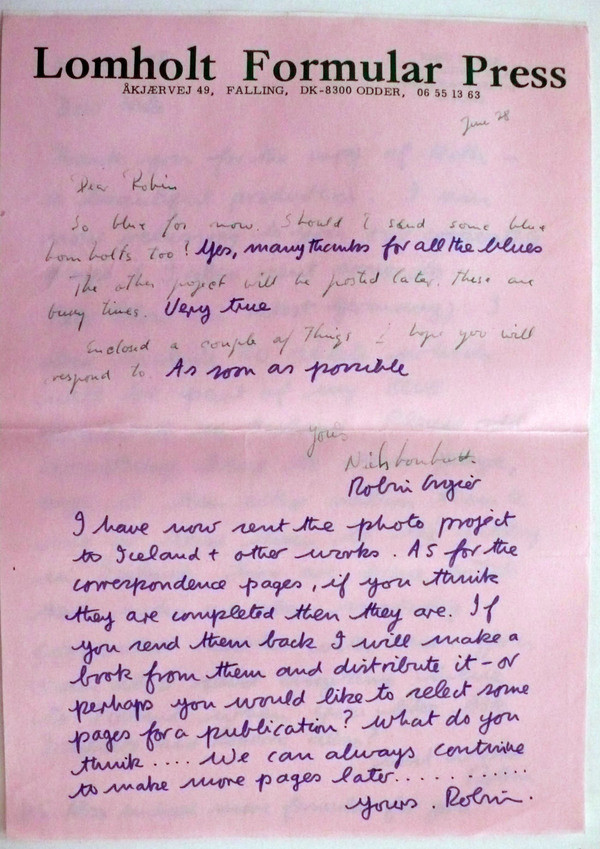 Lomholt Formular Press
ÅKJÆRVEJ 49, FALLING, DK-8300 ODDER, 06 55 13 63
June 28
Dear Robin
So blue for now. Should I send some blue
lomholts too! Yes, many thanks for all the blues
The other project will be posted later. These are
busy times. Very true
Enclosed a couple of things I hope you will
respond to. As soon as possible
Yours
Niels Lomholt
Robin Crozier
I have now sent the photo project
to Iceland + other works. AS for the
correspondence pages, if you think
they are completed then they are. If
you send them back I will make a
book from them and distribute it - or
perhaps you would like to select some
pages for a publication? What do you
think .... We can always continue
to make more pages later............
yours. Robin.